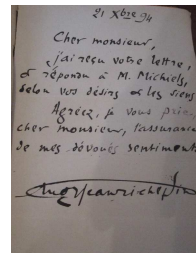 21 Xbre 94
Cher monsieur,
j'ai reçu votre lettre,
et répondu à M. Michiels,
selon vos désirs et les siens
Agréez, je vous prie,
cher monsieur, l'assurance
de mes dévoués sentiments
Jean Richepin